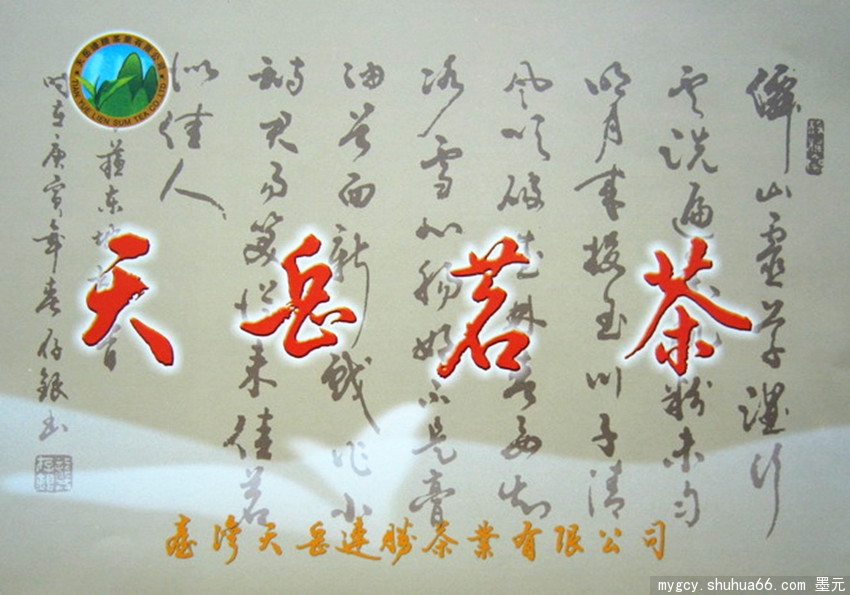 天岳連勝茶業有限公司
TIAN YUE LIEN SUM TEA CO.,LTD
僊山靈草濕行
雲洗遍香肌粉未勻
明月來投玉川子清
風吹破武林春要知
冰雪心腸好不是膏
油首面新戲作小
詩君勿笑從來佳茗
似佳人
蘇東坡詩首
在庚寅年春存銀書
天岳茗茶
臺灣天岳連勝茶業有限公司
mygcy.shuhua66.com 墨元